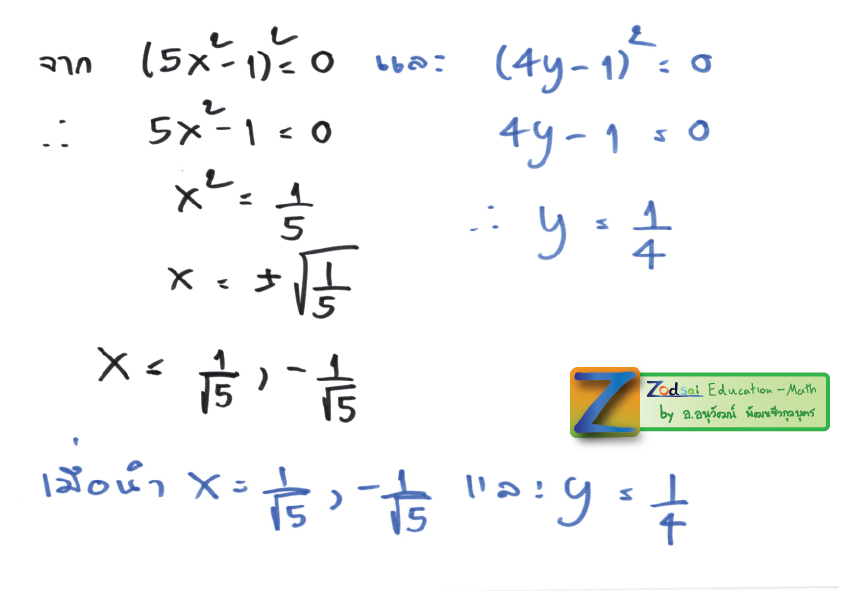 จาก (5x²-1)² = 0 และ (4y-1)² = 0
∴ 5x²-1 = 0 4y-1 = 0
x² = 1/5 ∴ y = 1/4
x = ±√(1/5)
x = 1/√5 , -1/√5
Zodsai Education-Math
by อ.อนุวัฒน์ พัฒนชัวกุลบุตร
เมื่อนำ x = 1/√5 , -1/√5 และ y = 1/4